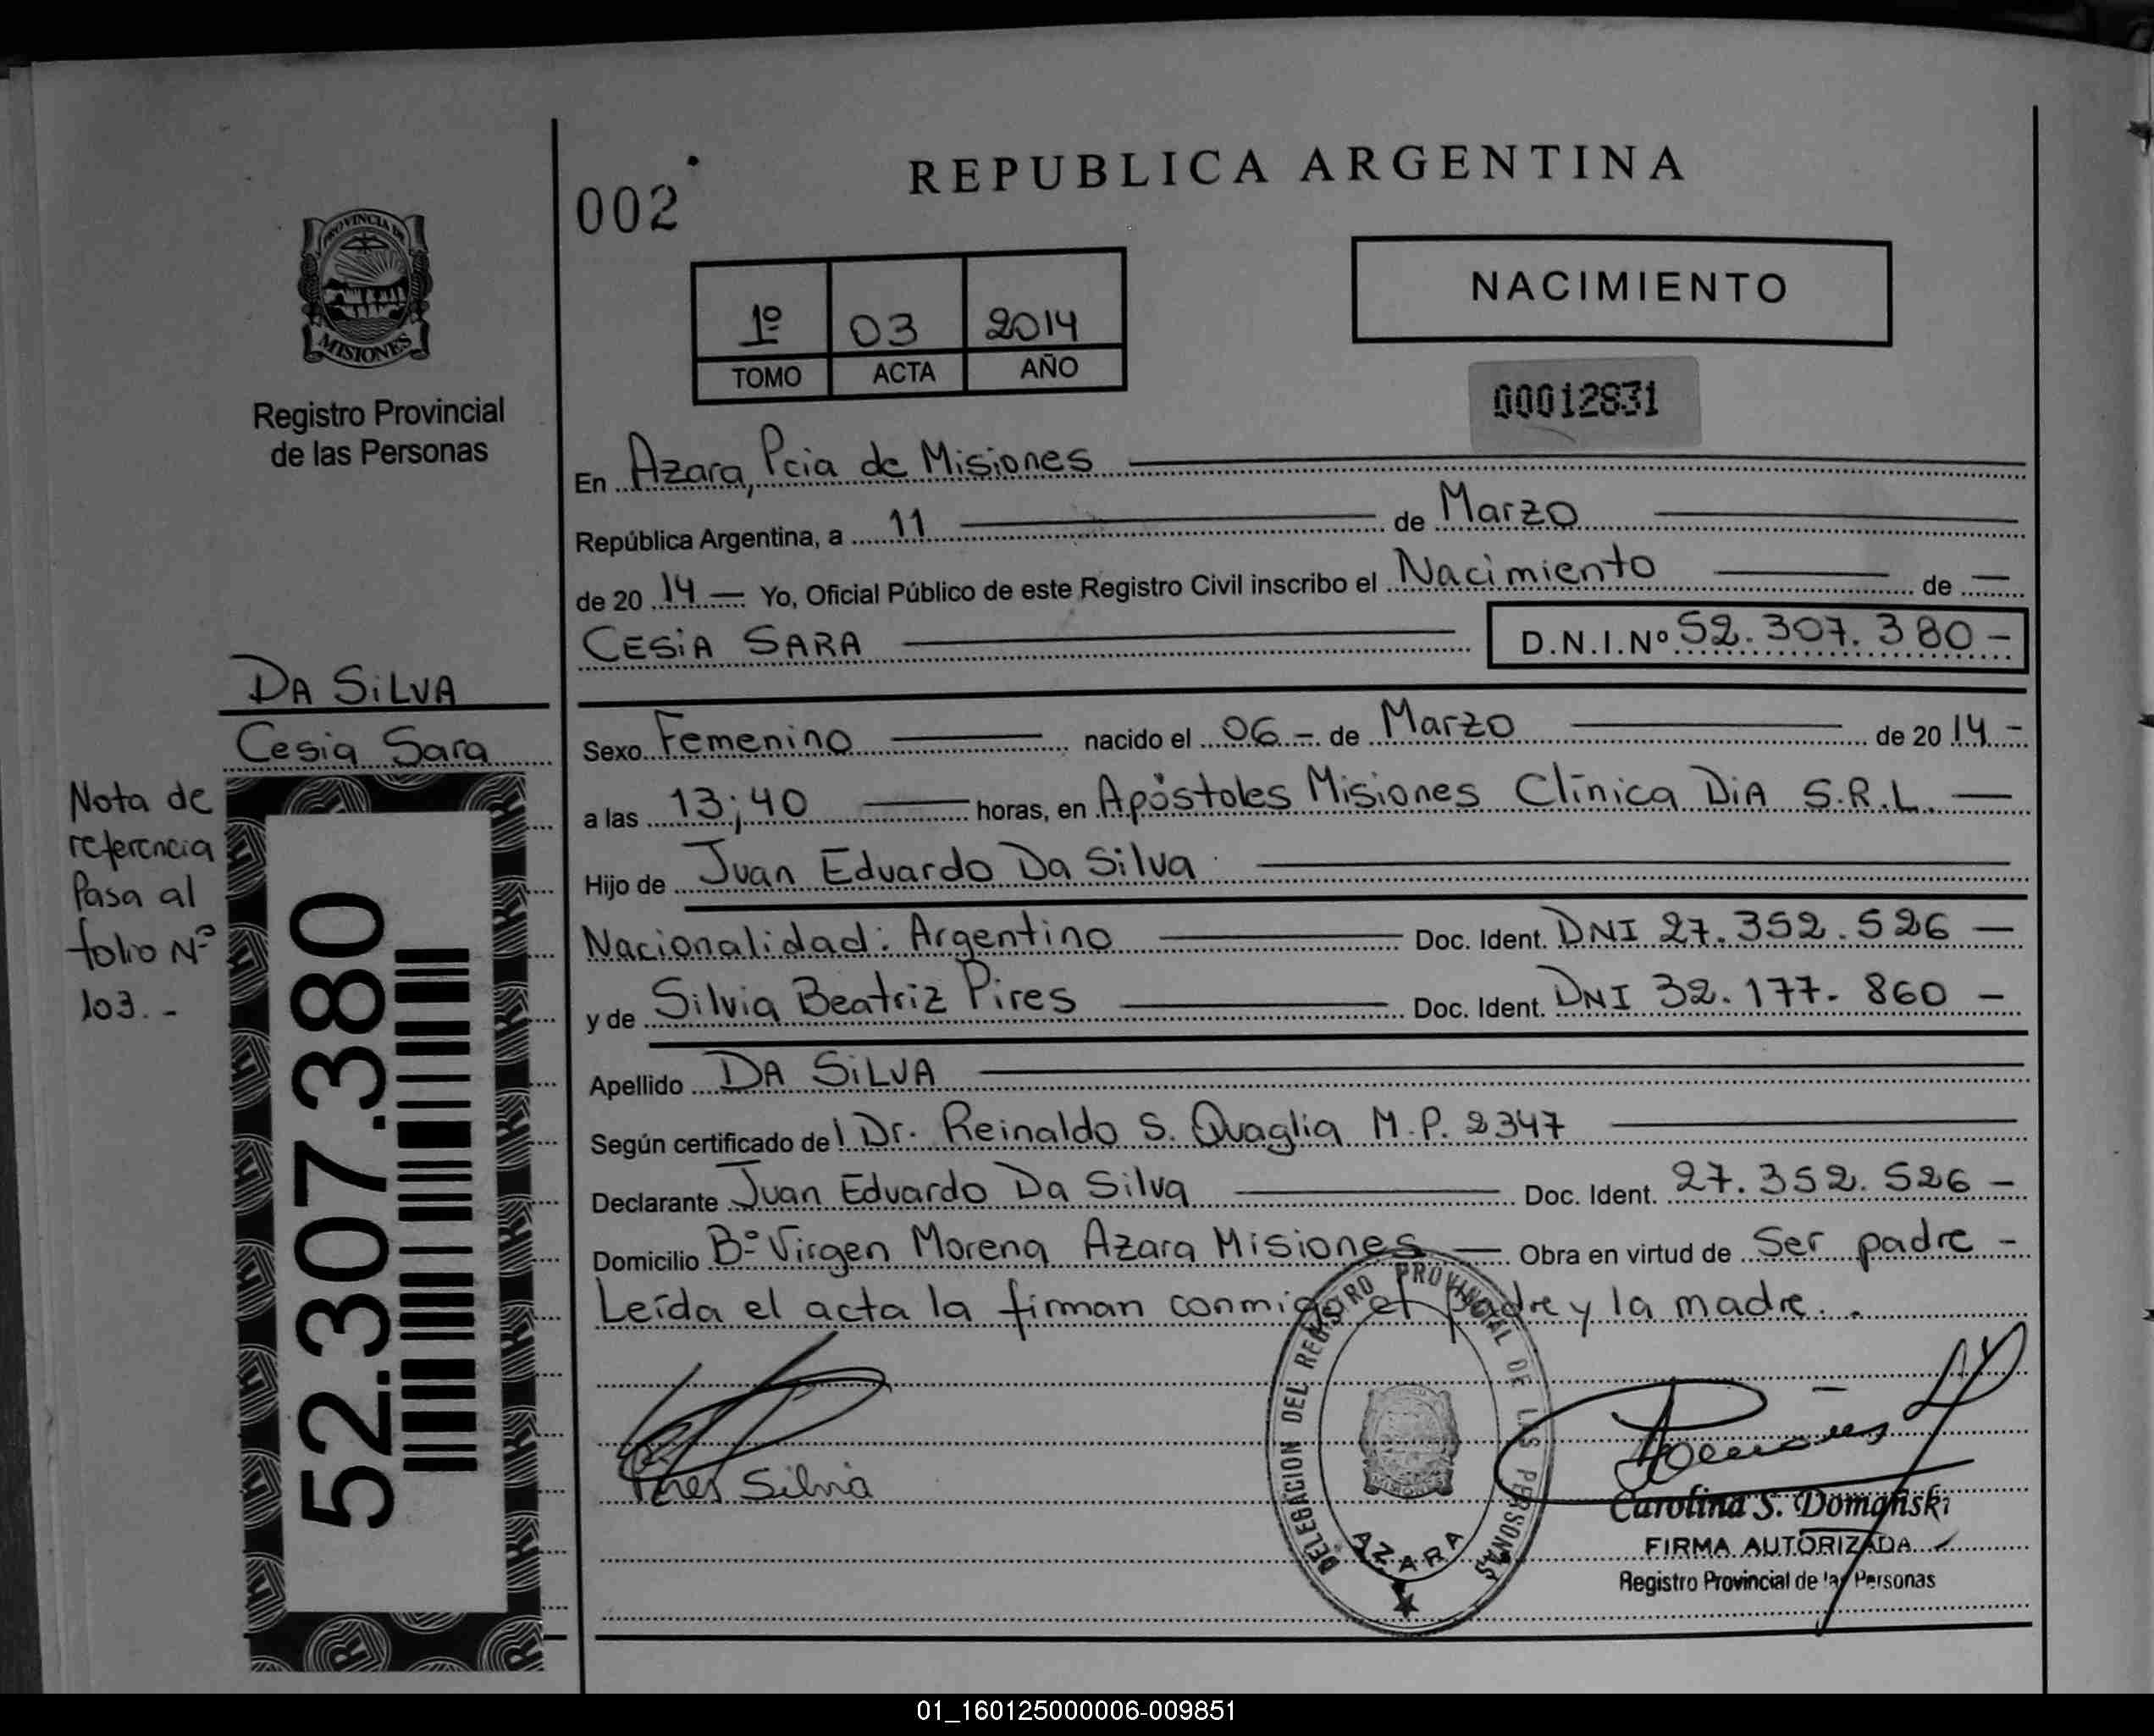 REPUBLICA ARGENTINA
002
PROVINCIA DE
MISIONES
Registro Provincial
de las Personas
1º 03 2014
TOMO ACTA AÑO
NACIMIENTO
00012831
En Azara, Pcia de Misiones
República Argentina, a 11 de Marzo
de 20 14 — Yo, Oficial Público de este Registro Civil inscribo el Nacimiento — de —
CESiA SARA — D.N.I.Nº 52.307.380 -
DA SiLVA
Cesia Sara
Nota de
referencia
Pasa al
folio Nº
103.-
52.307.380
Sexo Femenino — nacido el 06 - de Marzo — de 20 14 -
a las 13;40 — horas, en Apóstoles Misiones Clínica DiA S.R.L. —
Hijo de Juan Eduardo Da Silva
Nacionalidad: Argentino — Doc. Ident. DNI 27.352.526 —
y de Silvia Beatriz Pires — Doc. Ident. DNI 32.177.860 —
Apellido DA SiLVA
Según certificado del Dr. Reinaldo S. Quaglia M.P. 2347
Declarante Juan Eduardo Da Silva — Doc. Ident. 27.352.526 -
Domicilio Bº Virgen Morena Azara Misiones — Obra en virtud de Ser padre -
Leída el acta la firman conmigo el padre y la madre. .
Pires Silvia
DELEGACION DEL REGISTRO PROVINCIAL DE LAS PERSONAS
AZARA
Carolina S. Domañski
FIRMA AUTORIZADA
Registro Provincial de las Personas
01_160125000006-009851